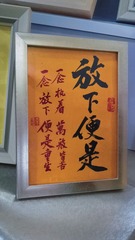 放下便是
一念执着 萬般皆苦
一念放下 便是重生